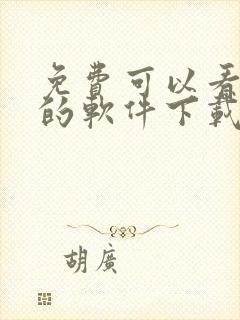 免費可以看
的軟件下載
胡廣